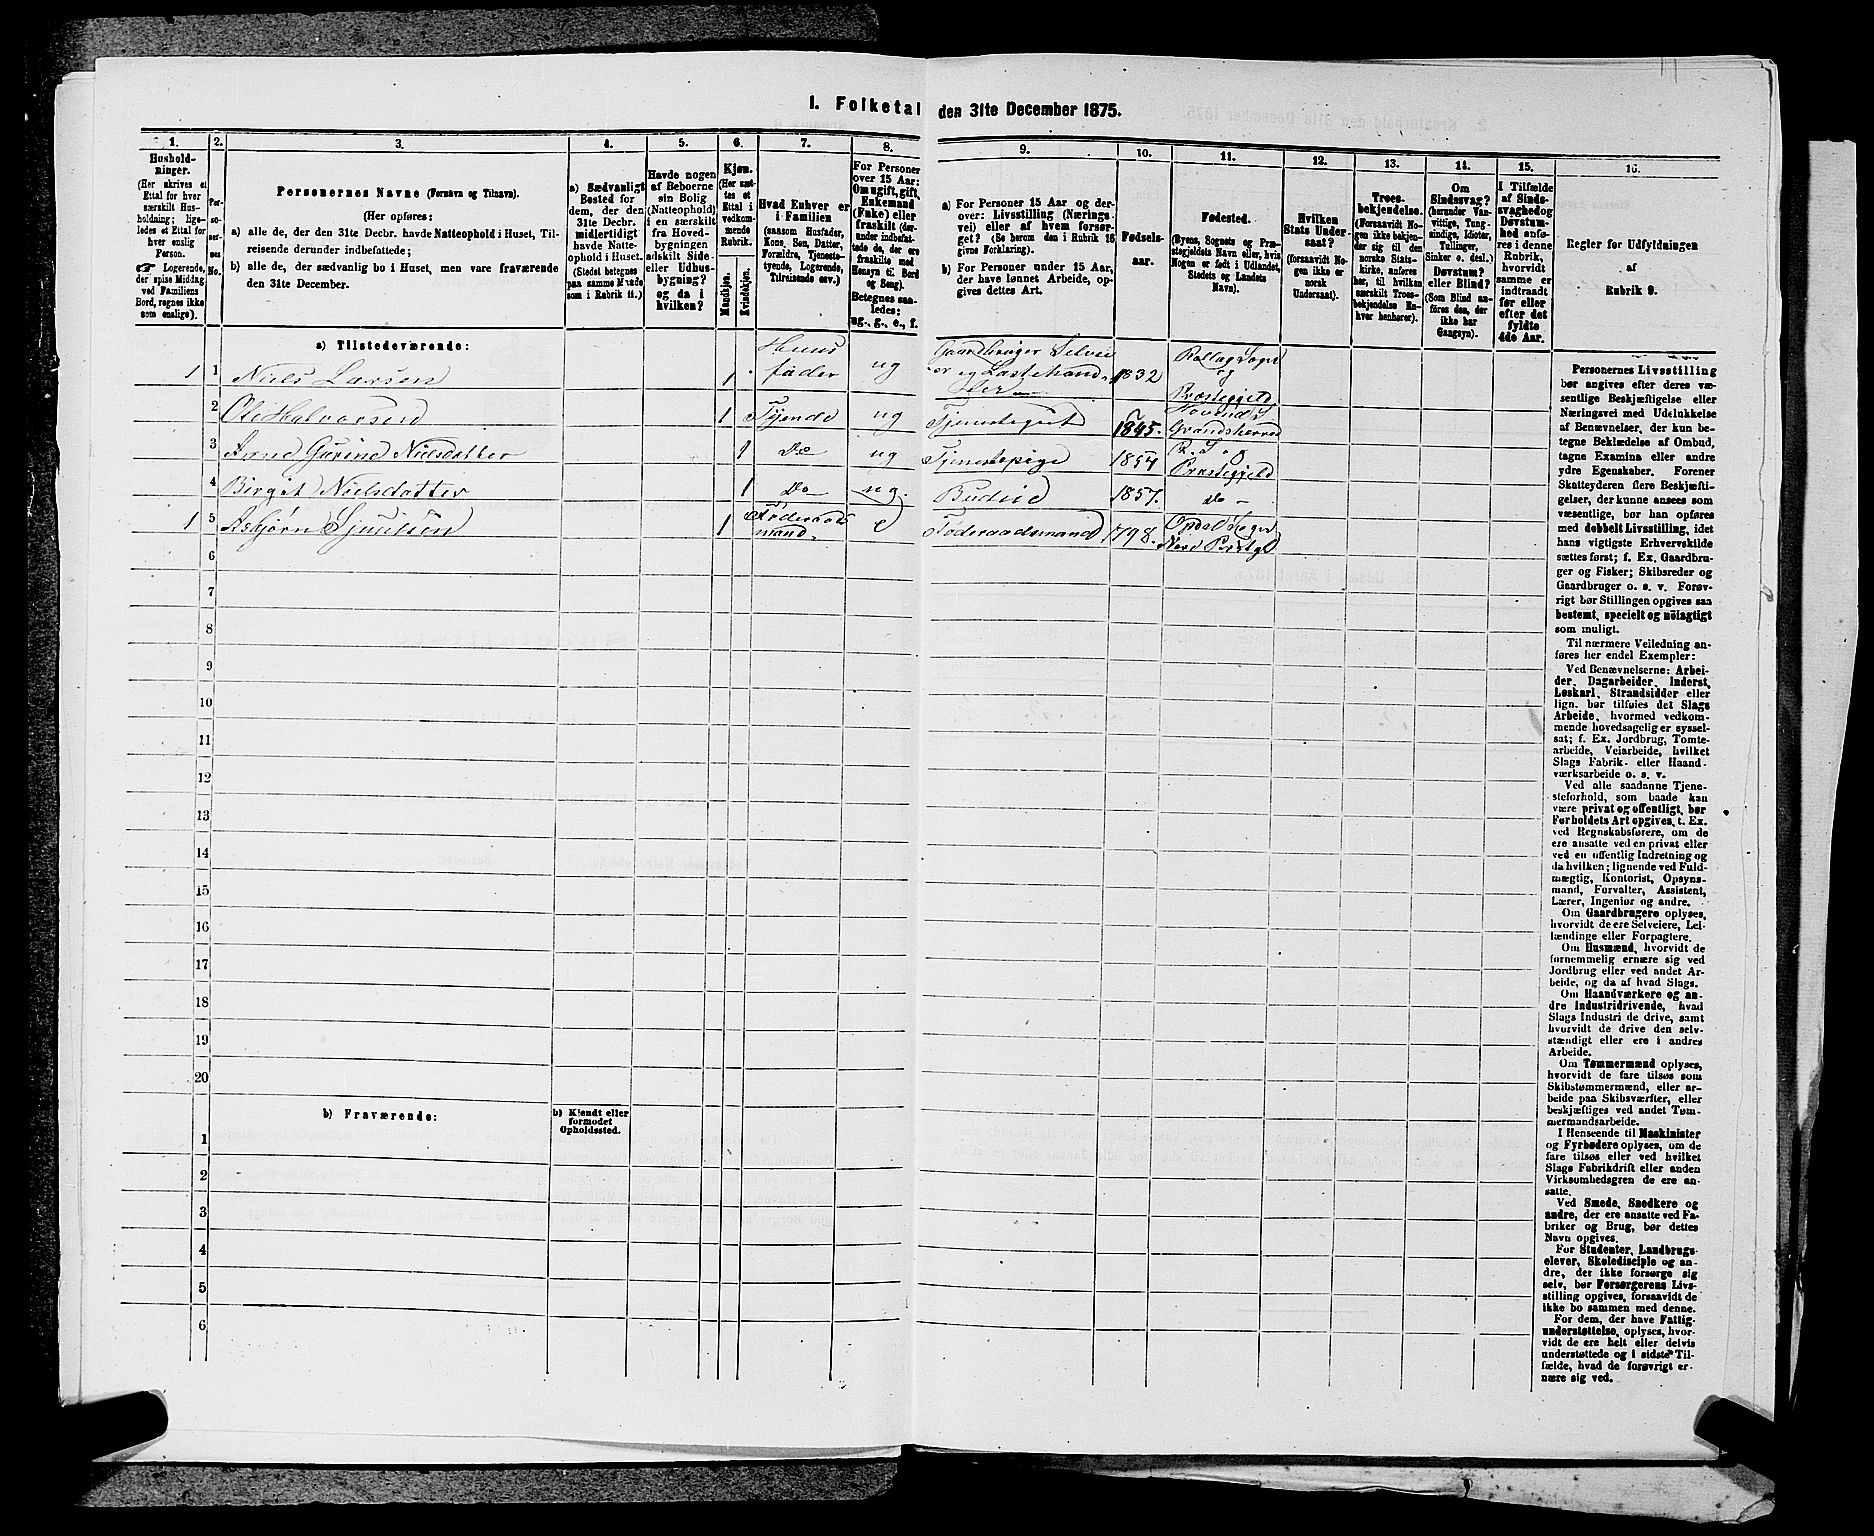 1. Folketal den 31te December 1875.
1. 2. 3. 4. 5. 6. 7. 8. 9. 10. 11. 12. 13. 14. 15. 16.
Hushold-
ninger.
(Her skrives et
Ettal for hver
særskilt Hus-
holdning; lige-
ledes et Ettal for
hver enslig
Person.
☞ Logerende,
der spise Middag
ved Familiens
Bord, regnes ikke
som enslige).
Per-
so-
ner-
nes
No.
Personernes Navne (Fornavn og Tilnavn).
(Her opføres:
a) alle de, der den 31te Decbr. havde Natteophold i Huset, Til-
reisende derunder indbefattede;
b) alle de, der sædvanlig bo i Huset, men vare fraværende
den 31te December.
a) Sædvanligt
Bosted for
dem, der den
31te Decbr.
midlertidigt
havde Natte-
ophold i Huset.
(Stedet betegnes
paa samme Maade
som i Rubrik 11.)
Havde nogen
af Beboerne
sin Bolig
(Natteophold)
i en særskilt
fra Hoved-
bygningen
adskilt Side-
eller Udhus-
bygning?
og da i
hvilken?
Kjøn.
(Her sæt-
tes et
Ettal i
vedkom-
mende
Rubrik.
Mandkjøn.
Kvindekjøn.
Hvad Enhver er
i Familien
(saasom Husfader,
Kone, Søn, Datter,
Forældre, Tjeneste-
tyende, Logerende,
Tilreisende osv.)
For Personer
over 15 Aar:
Om ugift, gift,
Enkemand
(Enke) eller
fraskilt (der-
under indbefat-
tede de, der ere
fraskilte med
Hensyn til Bord
og Seng).
Betegnes saa-
ledes:
ug., g., e., f.
a) For Personer 15 Aar og der-
over: Livsstilling (Nærings-
vei) eller af hvem forsør-
get? (Se herom den i Rubrik 16
givne Forklaring).
b) For Personer under 15 Aar,
der have lønnet Arbeide, op-
gives dettes Art.
Fødsels-
aar.
Fødested.
(Byens, Sognets og Præ-
stegjeldets Navn eller, hvis
Nogen er født i Udlandet,
Stedets og Landets
Navn).
Hvilken
Stats Under-
saat?
(forsaavidt No-
gen ikke er
norsk
Undersaat).
Troes-
bekjendelse.
(Forsaavidt No-
gen ikke bekjen-
der sig til den
norske Stats-
kirke, anføres
her, til hvilken
særskilt Troes-
bekjendelse En-
hver henhører).
Om
Sindssvag?
(herunder Van-
vittige, Tung-
sindige, Idioter,
Tullinger,
Sinker o. desl.)
Døvstum?
eller Blind?
(Som Blind an-
føres den, der
ikke har
Gangsyn).
I Tilfælde
af Sinds-
svaghed og
Døvstum-
hed anfø-
res i denne
Rubrik,
hvorvidt
samme er
indtraadt
før eller
efter det
fyldte
4de Aar.
Regler for Udfyldningen
af
Rubrik 9.
a) Tilstedeværende:
1 1 Niels Larsen 1 Huusfader ug Gaardbruger Selveier og Lastehandler 1832 Rollag Sogn og Præstegjeld
2 Ole Halvorsen 1 Tjende ug Tjenestegut 1845. Grandsherred
3 Anne Gurine Nielsdatter 1 Do ug Tjenestepige 1854 R. S. og Præstegjeld
4 Birgit Nielsdatter 1 Do ug. Budeie 1857. Do -
1 5 Asbjørn Sjulsen 1 Føderaadsmand. e Føderaadsmand 1798. Opdal Sogn
6
7
8
9
10
11
12
13
14
15
16
17
18
19
20
b) Fraværende:
b) Kjendt eller
formodet
Opholdssted.
1
2
3
4
5
6
Personernes Livsstilling
bør angives efter deres væ-
sentlige Beskjæftigelse eller
Næringsvei med Udelukkelse
af Benævnelser, der kun be-
tegne Beklædelse af Ombud,
tagne Examina eller andre
ydre Egenskaber. Forener
Skatteyderen flere Beskjæfti-
gelser, der kunne ansees som
væsentlige, bør han opføres
med dobbelt Livsstilling, idet
hans vigtigste Erhvervskilde
sættes først; f. Ex. Gaardbru-
ger og Fisker; Skibsreder og
Gaardbruger o. s. v. Forøv-
rigt bør Stillingen opgives saa
bestemt, specielt og nøiagtigt
som muligt.
Til nærmere Veiledning an-
føres her endel Exempler:
Ved Benævnelserne: Arbei-
der, Dagarbeider, Inderst,
Løskarl, Strandsidder eller
lign. bør tilføies det Slags
Arbeide, hvormed vedkom-
mende hovedsagelig er syssel-
sat; f. Ex. Jordbrug, Tomte-
arbeide, Veiarbeide, hvilket
Slags Fabrik- eller Haand-
værksarbeide o. s. v.
Ved alle saadanne Tjene-
steforhold, som baade kan
være privat og offentligt, bør
Forholdets Art opgives, t. Ex.
ved Regnskabsførere, om de
ere ansatte ved en privat eller
ved en offentlig Indretning og
da hvilken; lignende ved Fuld-
mægtig, Kontorist, Opsyns-
mand, Forvalter, Assistent,
Lærer, Ingeniør og andre.
Om Gaardbrugere oplyses,
hvorvidt de ere Selveiere, Lei-
lændinge eller Forpagtere.
Om Husmænd, hvorvidt de
fornemmelig ernære sig ved
Jordbrug eller ved andet Ar-
beide, og da af hvad Slags.
Om Haandværkere og an-
dre Industridrivende, hvad
Slags Industri de drive, samt
hvorvidt de drive den selv-
stændigt eller ere i andres
Arbeide.
Om Tømmermænd oplyses,
hvorvidt de fare tilsøs som
Skibstømmermænd, eller ar-
beide paa Skibsværfter, eller
beskjæftiges ved andet Tøm-
mermandsarbeide.
I Henseende til Maskinister
og Fyrbødere oplyses, om de
fare tilsøs eller ved hvilket
Slags Fabrikdrift eller anden
Virksomhedsgren de ere an-
satte.
Ved Smede, Snedkere og
andre, der ere ansatte ved Fa-
briker og Brug, bør dettes
Navn opgives.
For Studenter, Landbrugs-
elever, Skoledisciple og an-
dre, der ikke forsørge sig
selv, bør Forsørgerens Livs-
stilling opgives, forsaavidt de
ikke bo sammen med denne.
For dem, der have Fattig-
understøttelse, oplyses, hvor-
vidt de ere helt eller delvis
understøttede og i sidste Til-
fælde, hvad de forøvrigt er-
nære sig ved.